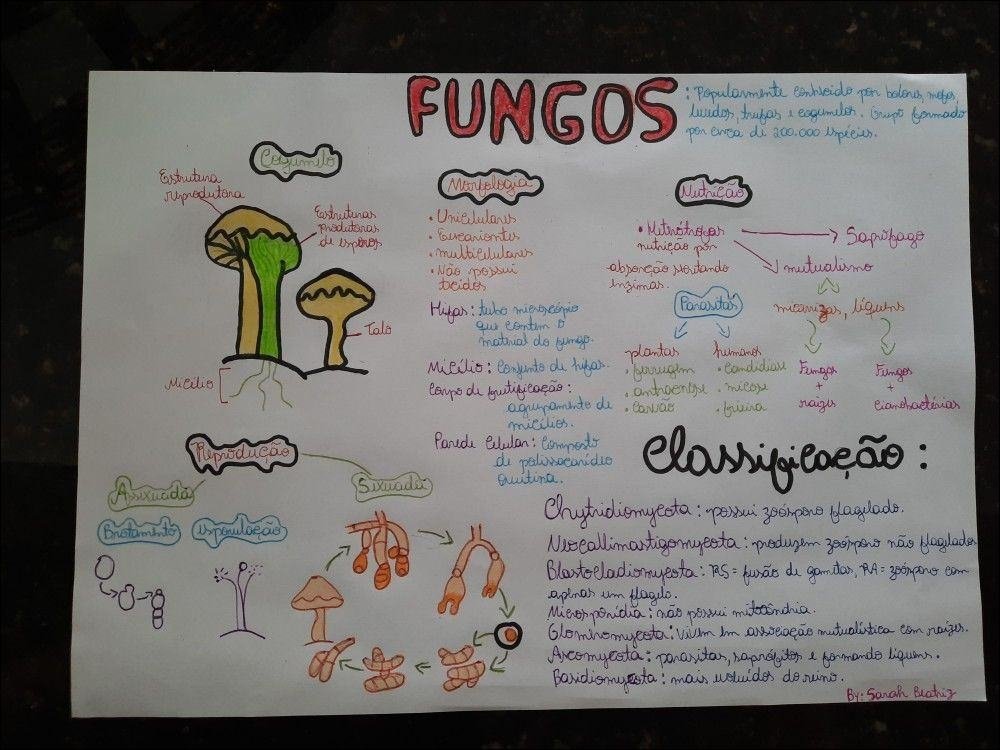 FUNGOS
: Popularmente conhecido por bolores, mofos,
levedos, trufas e cogumelos. Grupo formado
por cerca de 200.000 espécies.
Cogumelo
Estrutura
reprodutora
Estruturas
produtoras
de esporos
Talo
Micílio
Morfologia
• Unicelulares
• Eucariontes
• multicelulares
• Não possui
tecidos
Hifas: tubo microscópio
que contem o
material do fungo.
Micílio: Conjunto de hifas.
Corpo de frutificação:
agrupamento de
micílios.
Parede Celular: Composto
de polissacarídeo
quitina.
Nutrição
nutrição por
absorção
enzimas.
Saprófago
mutualismo
micorrizas, líquens
Fungos
+
raízes
Fungos
+
cianobactérias
Parasitas
plantas
• ferrugem
• antracnose
• carvão
humanos
• candidíase
• micose
• frieira
Reprodução
Assexuada
Sexuada
Brotamento
esporulação
Classificação:
Chytridiomycota: possui zoósporo flagelado.
Neocallimastigomycota: produzem zoósporo não flagelados
Blastocladiomycota: RS = fusão de gametas, RA = zoósporo com
apenas um flagelo.
Microsporídia: não possui mitocôndria.
Glomiromycota: vivem em associação mutualística com raízes.
Ascomycota: parasitas, saprófitos e formando líquens.
Basidiomycota: mais evoluídos do reino.
By: Sarah Beatriz